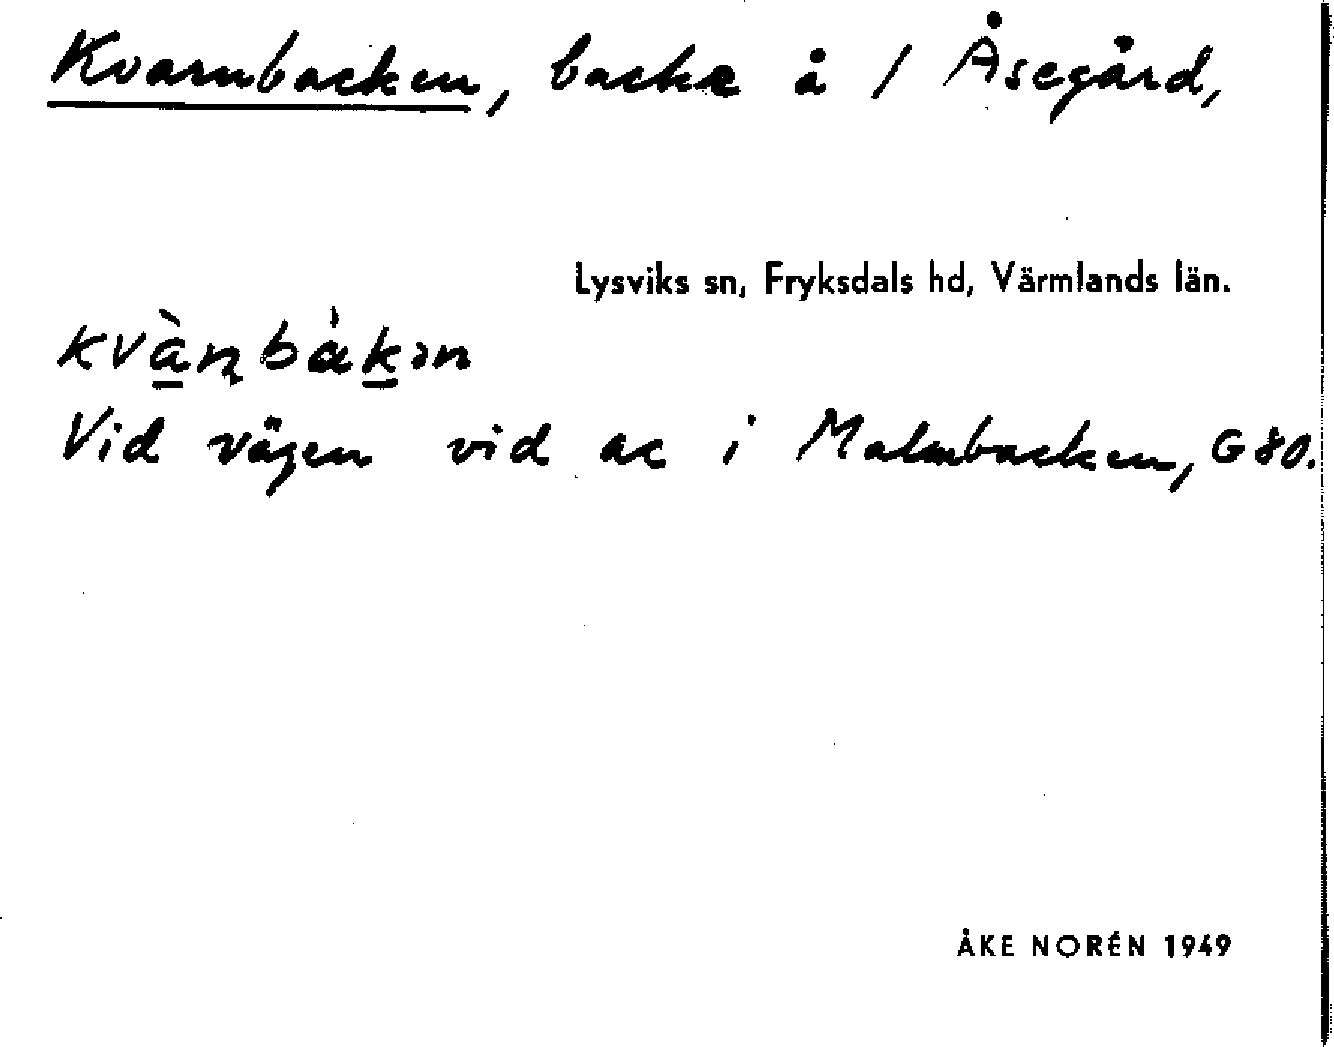 Kvarnbacken, backe å / Åsegård,
Lysviks sn, Fryksdals hd, Värmlands län.
kvàɳbàkən
Vid vägen vid ac i Malmbacken, G80.
ÅKE NORÉN 1949